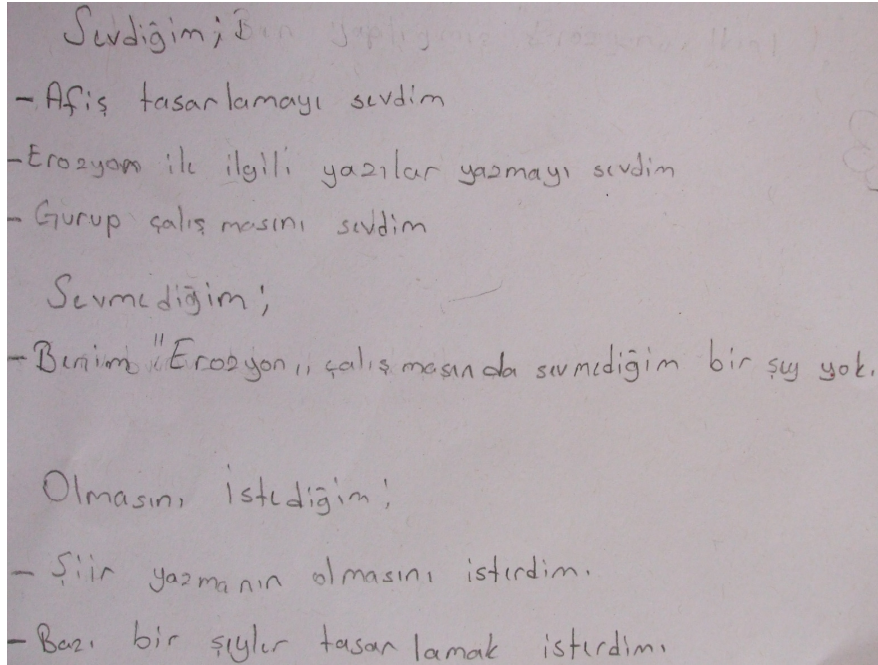 Sevdiğim;
- Afiş tasarlamayı sevdim
- Erozyon ile ilgili yazılar yazmayı sevdim
- Gurup çalışmasını sevdim
Sevmediğim;
- Benim "Erozyon,, çalışmasında sevmediğim bir şey yok.
Olmasını istediğim;
- Şiir yazmanın olmasını isterdim.
- Bazı bir şeyler tasarlamak isterdim.